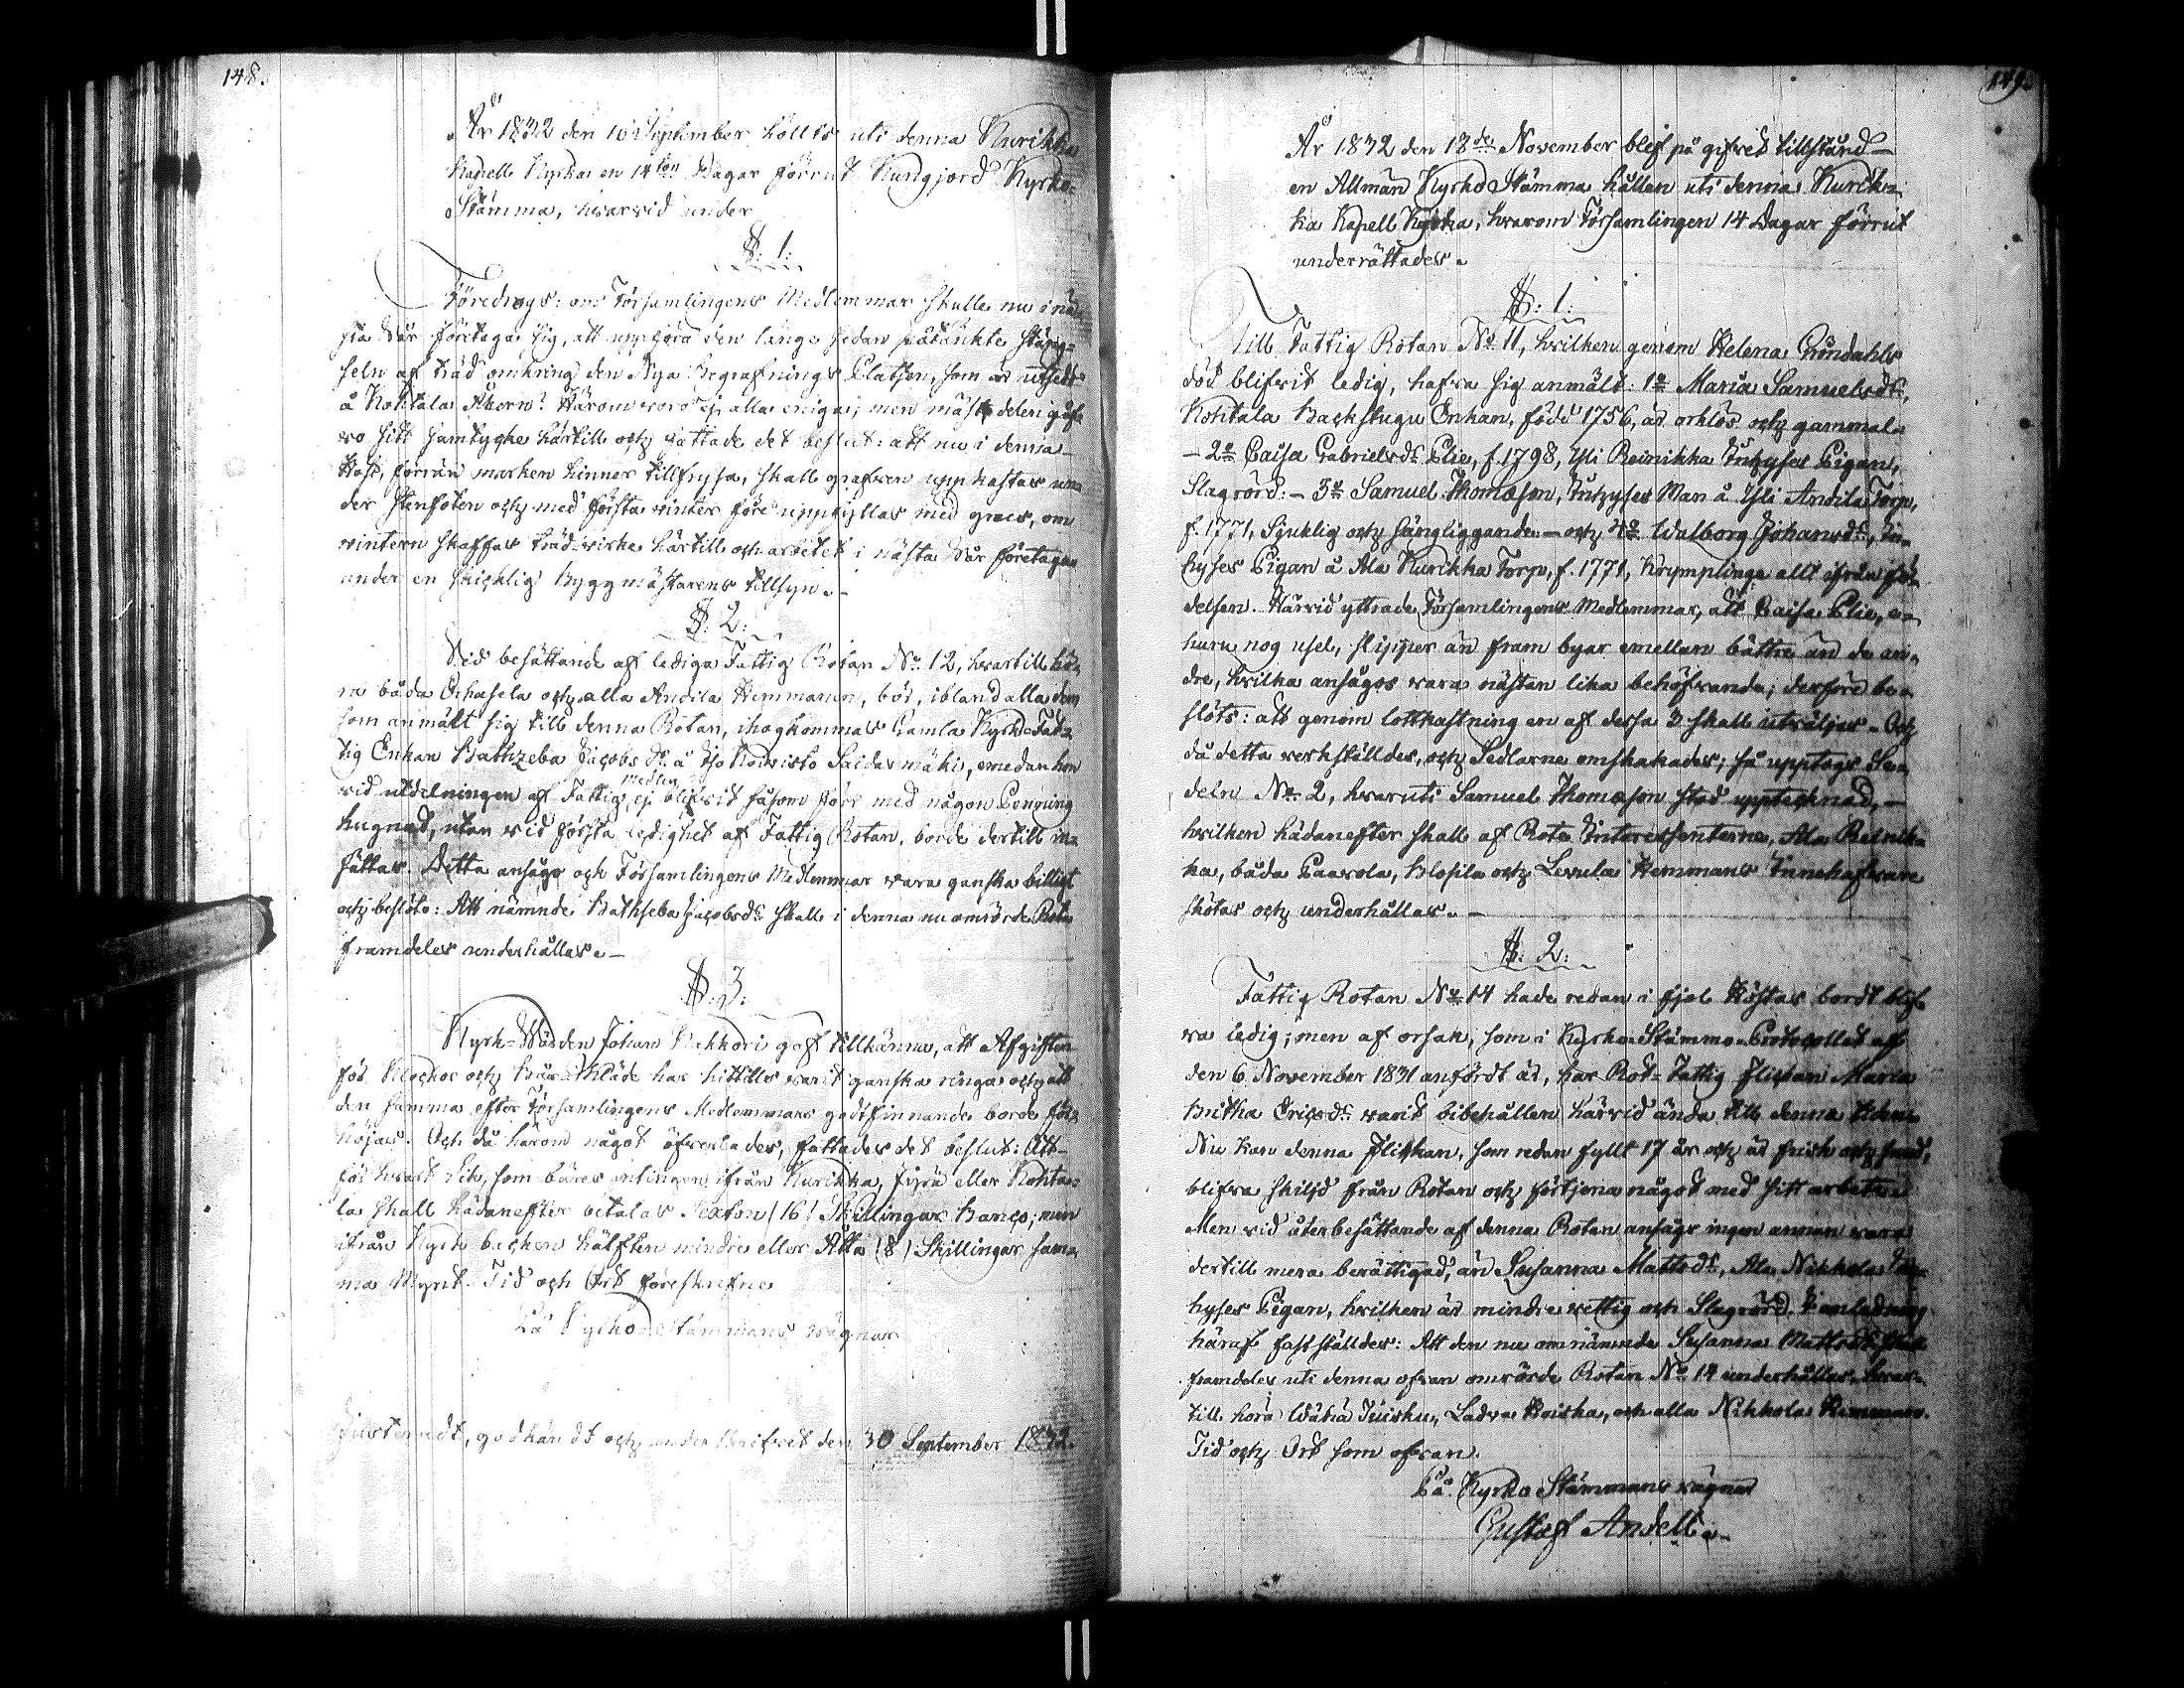 148.
År 1832 den 16 September hölls uti denna Kurikka
Kapell Kyrka en 14ton Dagar förrut Kundgjord Kyrko-
Stämma, hvarvid under
§: 1:
Föredrogs: om Församlingens Medlemmar skulle nu i nä-
sta Vår företaga sig, att uppföra den länge sedan påtänkte stäng-
seln af träd omkring den Nya Begrafnings Platsen, som är utsedd
å Kohtala Åkern? Härom voro ej alla eniga; men mästa delen gåf-
vo sitt samtycke härtill och fattade det beslut: att nu i denna
Höst, förrän marken hinner tillfrysa, skall grafven uppkastas un-
der stenfoten och med första vinter före uppfyllas med grus, om
vintern skaffas trädvirke härtill och arbetet i nästa Vår företagas
under en skicklig Byggmästarens tillsyn.-
§: 2:
Vid besättande af lediga Fattig Rotan No 12, hvartill hö-
ra båda Ochasela och alla Andila Hemmanen, bör, ibland alla dem
som anmält sig till denna Rotan, ihogkommas Gamla Kyrko-Fat-
tig Enkan Bathzeba Jacobsdr. å Iso Koivisto Saidasmäki, emedan hon
vid utdelningen af Fattigmedlen, ej blifvit såsom förr med någon Penning
hugnad, utan vid första ledighet af Fattig Rotan, borde dertill in-
sättas. Detta ansågs och Församlingens Medlemmar vara ganska billigt
och beslöts: Att nämnde Bathseba Jacobsdr skall i denna nu omrörde Rote
framdeles underhållas.-
§: 3:
Kyrk-Wärden Johan Kakkori gaf tillkänna, att Afgiften
för Klockor och Bår-Kläde har hittills varit ganska ringa och att
den samma efter Församlingens Medlemmars godtfinnande borde för-
höjas. Och då härom något öfverlades, fattades det beslut: Att
för hvart Lik, som bäres antingen ifrån Kurikka, Jyrä eller Kohta-
la skall hädanefter betalas Sexton (16) Skillingar Banco; men
ifrån Kyrkbacken hälften mindre eller Åtta (8) Skillingar sam-
ma Mynt. Tid och Ort föreskrefne
På Kyrko-Stämmans vägnar
Justeradt, godkändt och underskrifvet den 30 September 1832.
149.
År 1832 den 18de November blef på gifvet tillstånd
en Allmän Kyrko Stämma hållen uti denna Kurik-
ka Kapell Kyrka, hvarom Församlingen 14 Dagar förrut
underrättades.
§: 1:
Till Fattig Rotan No 11, hvilken genom Helena Gröndahls
död blifvit ledig, hafva sig anmält: 1o Maria Samuelsdr,
Kohtala Backstugu Enkan, född 1756, är orklös och gammal.
- 2o Caisa Gabrielsdr Elie, f. 1798, Yli Reinikka Inhyses Pigan,
Slagrörd: - 3o Samuel Thomasson, Inhyses Man å Yli Andila Torp,
f. 1771, Sjuklig och sängliggande - och 4o Walborg Johansdr, In-
hyses Pigan å Ala Kurikka Torp, f. 1771, Krympling allt ifrån fö-
delsen. Härvid yttrade Församlingens Medlemmar, att Caisa Elie, e-
huru nog usel, slipper än fram byar emellan bättre än de an-
dre, hvilka ansågos vara nästan lika behöfvande; derföre be-
slöts: att genom lottkastning en af dessa 3 skall utväljas. Och
då detta verkställdes, och Sedlarne omskakades; så upptogs Se-
deln No 2, hvaruti Samuel Thomasson stod upptecknad,-
hvilken hädanefter skall af Rote Intressenterne, Ala Reinik-
ka, båda Paavola, Klosila och Levula Hemmans Innehafvare
skötas och underhållas.-
§: 2:
Fattig Rotan No 14 hade redan i fjol Höstas bordt blif-
va ledig; men af orsak, som i Kyrko-Stämmo-Protocollet af
den 6 November 1831 anfördt är, har Rot-Fattig Flickan Maria
Britha Ericsdr varit bibehållen härvid ända till denna tiden.
Nu kan denna Flickan, som redan fyllt 17 år och är frisk och sund,
blifva skiljd från Rotan och förtjena något med sitt arbete.
Men vid återbesättande af denna Rotan ansågs ingen annan vara
dertill mera berättigad, än Susanna Mattsdr, Ala Nikkola In-
hyses Pigan, hvilken är mindre vettig och Slagrörd. I anledning
häraf fastställdes: Att den nu omnämnda Susanna Mattsdr skall
framdeles uti denna ofvan omrörde Rotan No 14 underhållas, hvar-
till höra Wähä Juisku, Ladva Hoiska, och alla Nikkola Hemman.
Tid och Ort som ofvan.
På Kyrko Stämmans vägnar
Gustaf Andell.